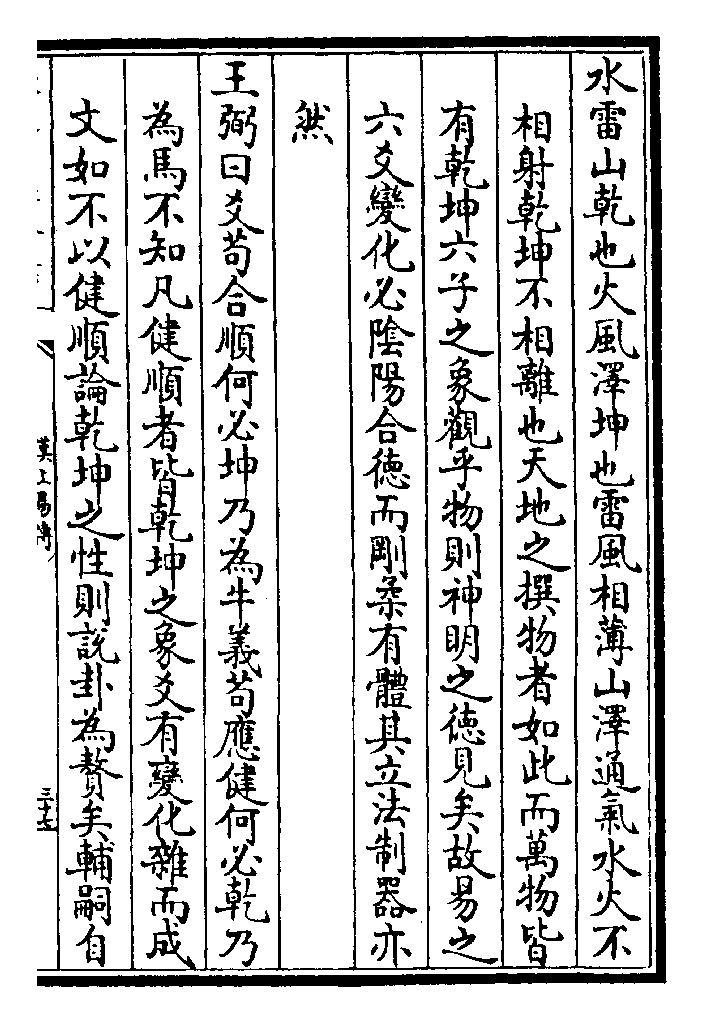 水雷山乾也火風澤坤也雷風相薄山澤通氣水火不
相射乾坤不相離也天地之撰物者如此而萬物皆
有乾坤六子之象觀乎物則神明之德見矣故易之
六爻變化必陰陽合德而剛柔有體其立法制器亦
然
王弼曰爻苟合順何必坤乃為牛義苟應健何必乾乃
為馬不知凡健順者皆乾坤之象爻有變化雜而成
文如不以健順論乾坤之性則說卦為贅矣輔嗣自
漢上易傳
三十七